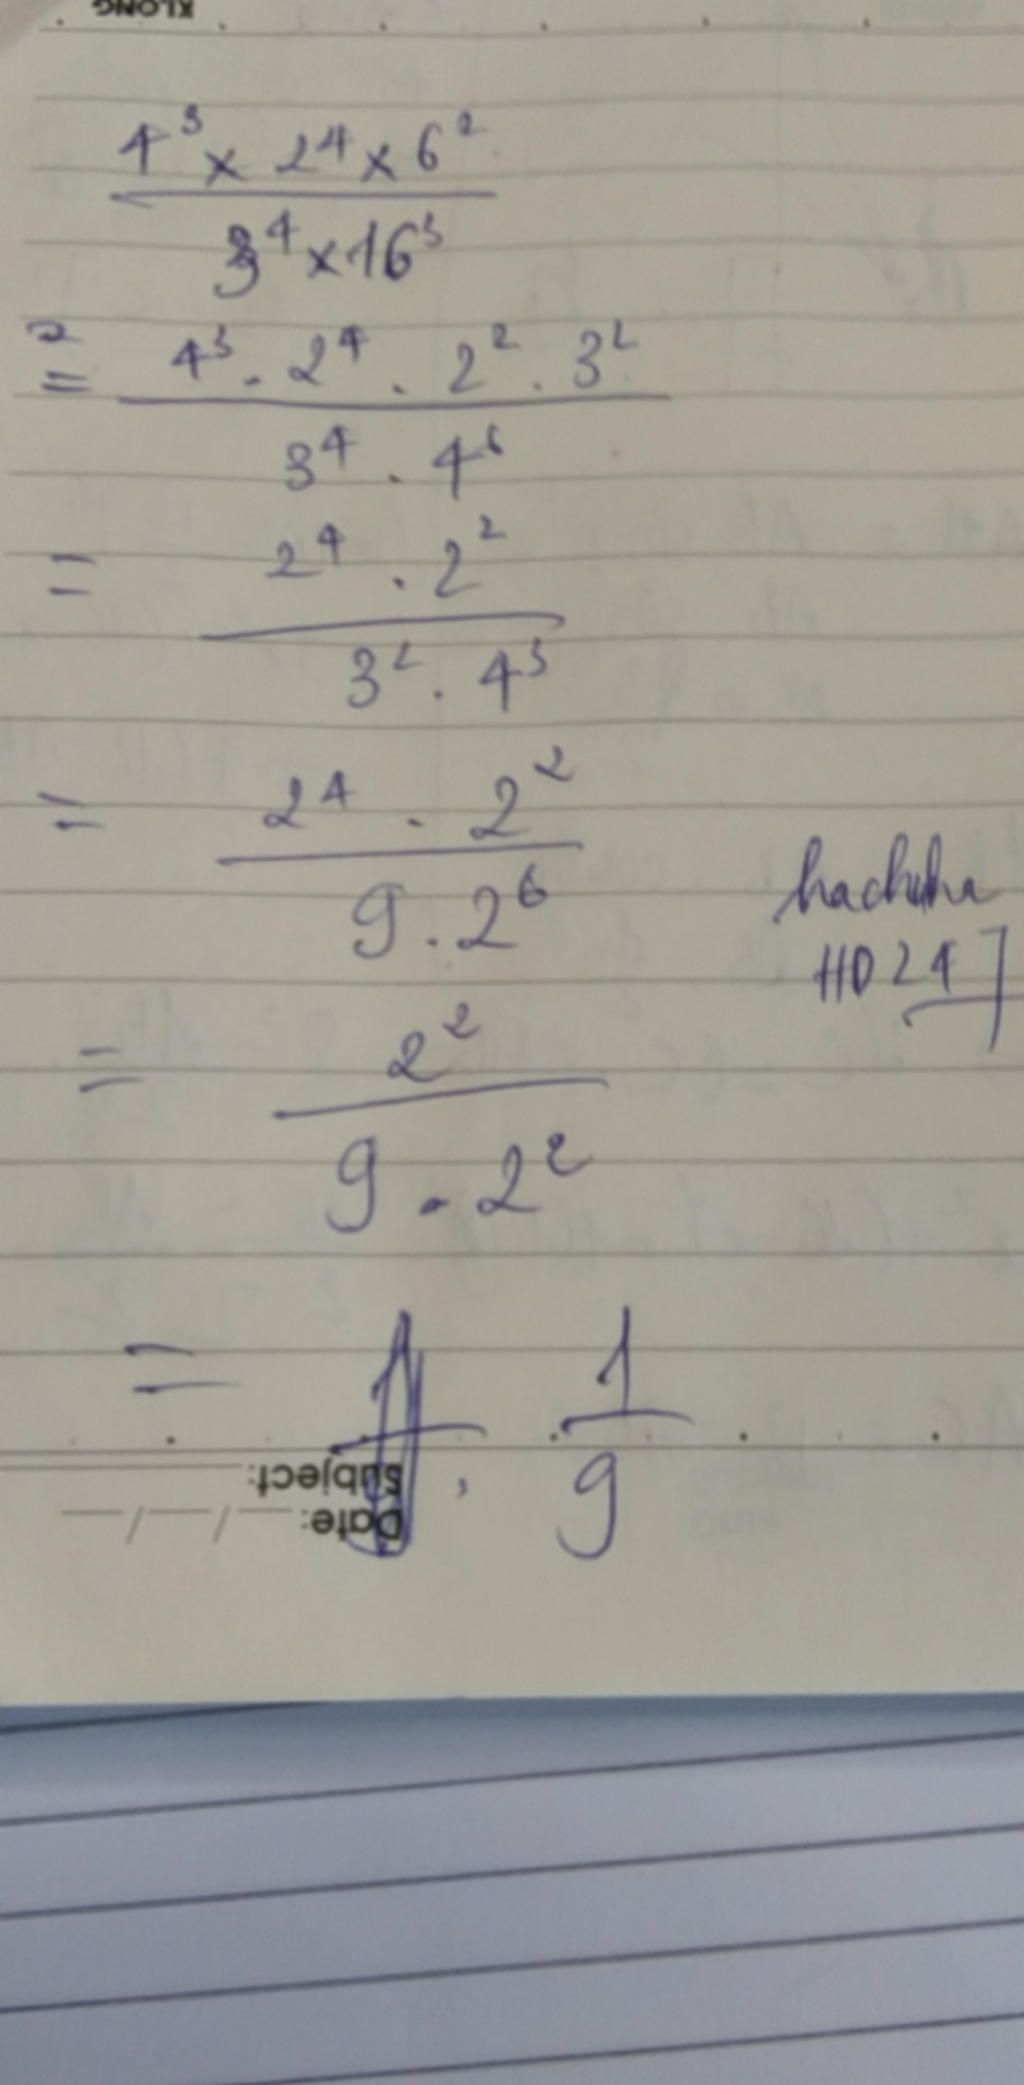 KLONG
4³ × 2⁴ × 6²
3⁴ × 16³
= 4³ . 2⁴ . 2² . 3²
3⁴ . 4⁶
= 2⁴ . 2²
3² . 4³
= 2⁴ . 2²
9 . 2⁶
hachuha
HD247
= 2²
9 . 2²
= 1
9
Subject:
Date: / /